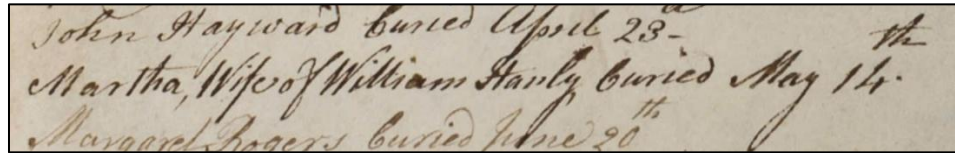 John Hayward buried April 23^d
Martha, Wife of William Stanly buried May 14^th
Margaret Rogers buried June 20^th